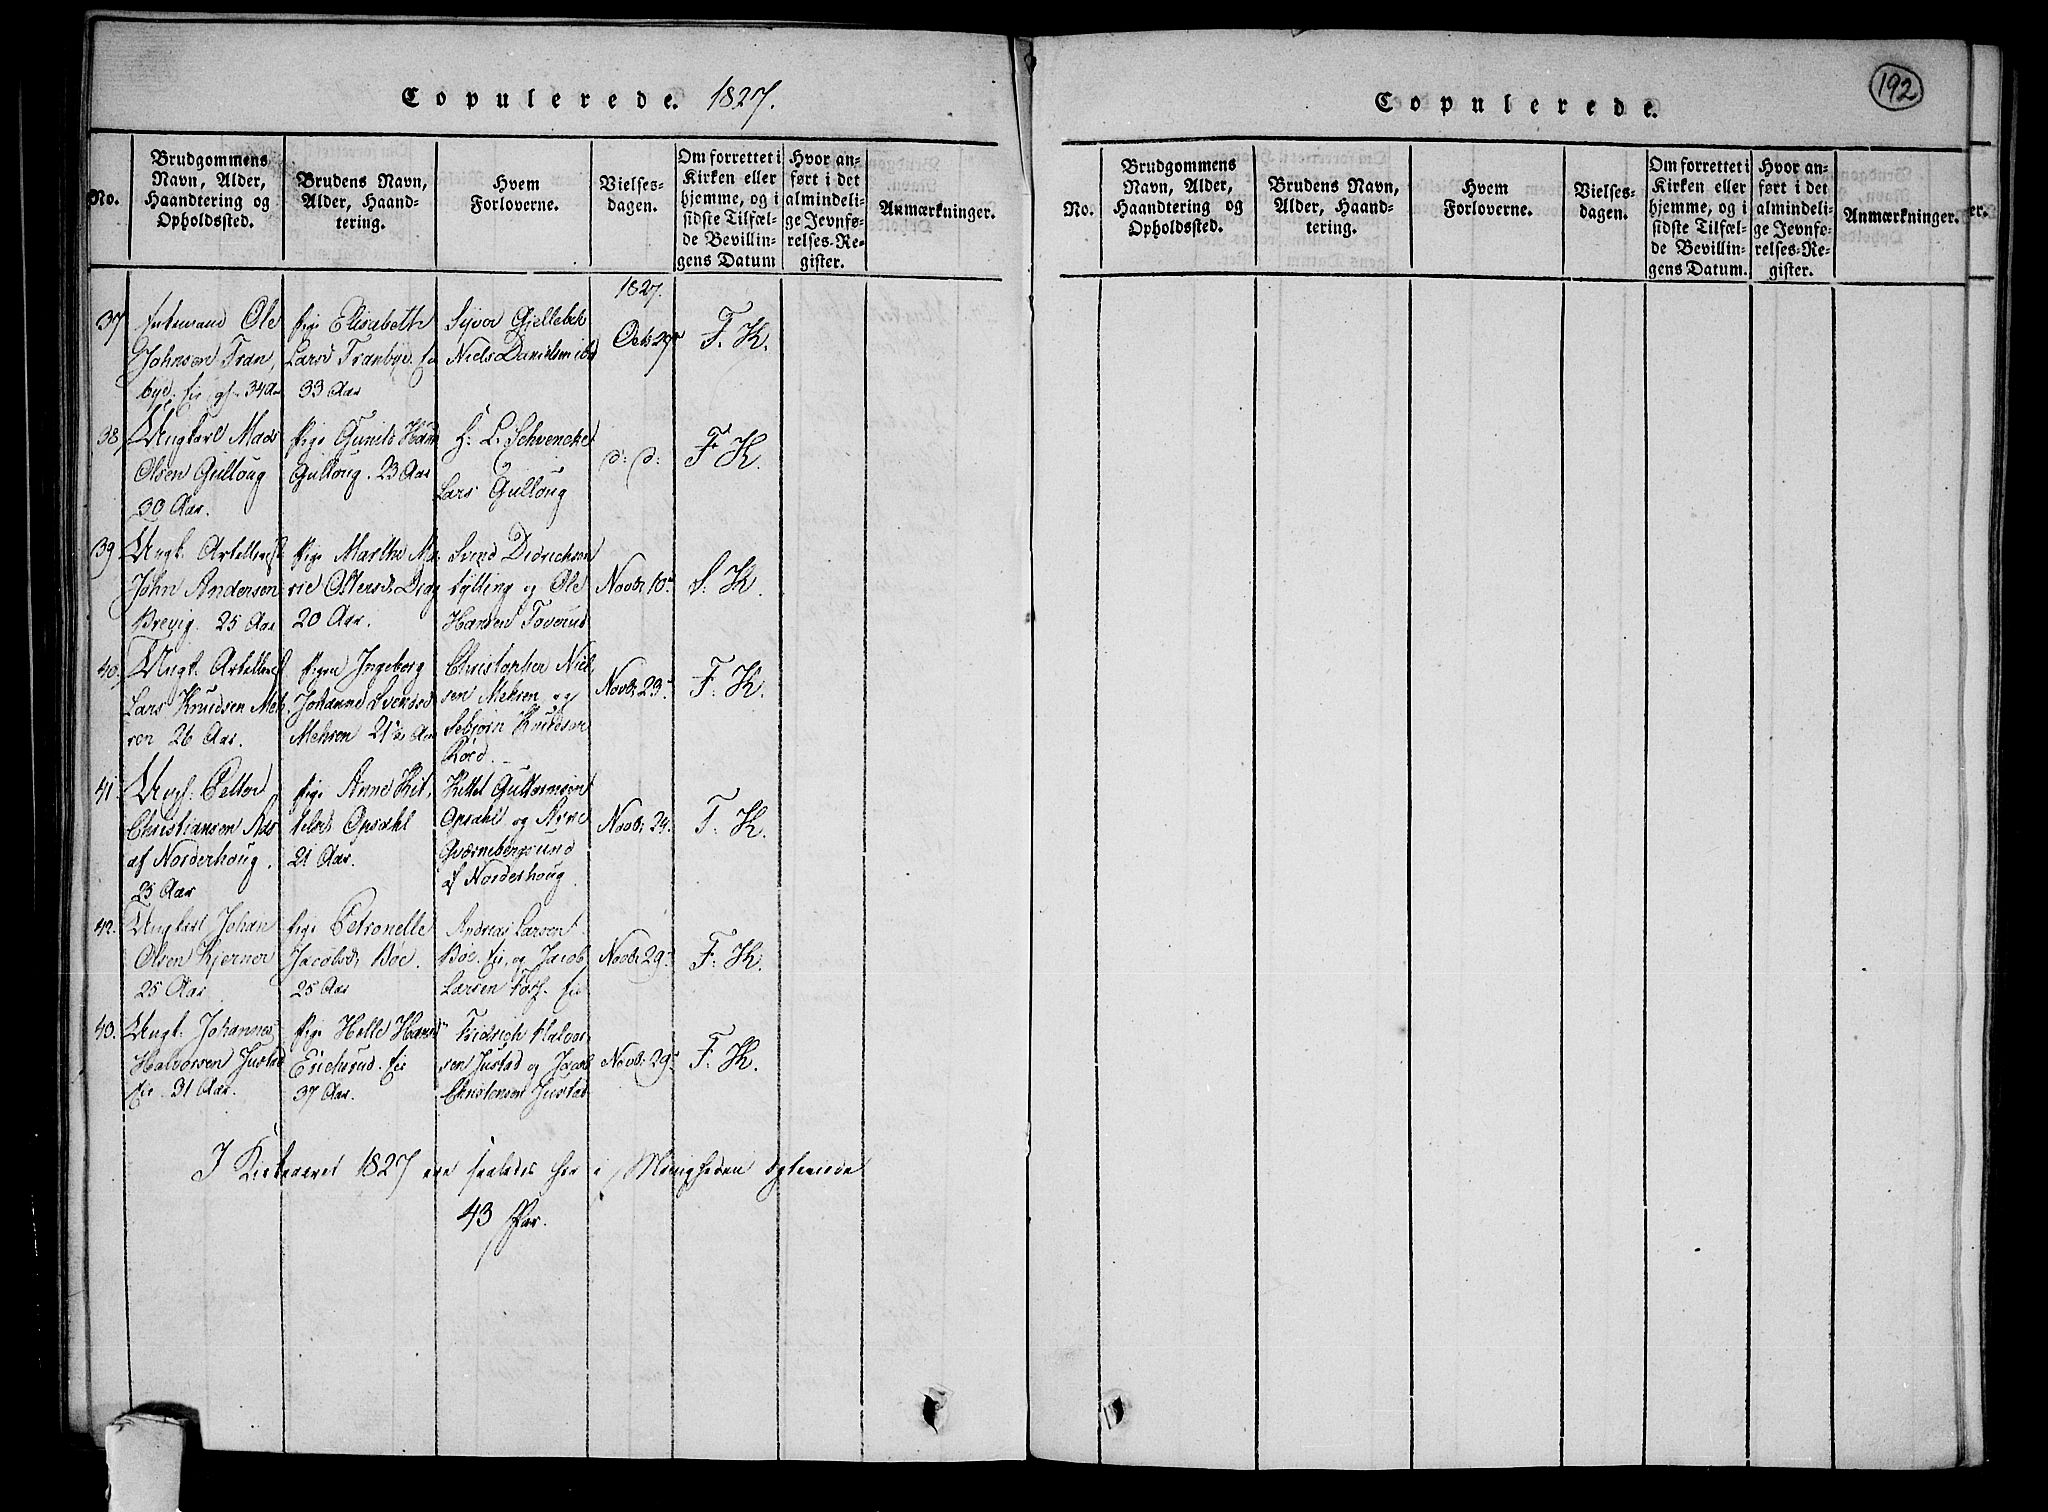 Copulerede. 1827.
No.
Brudgommens Navn, Alder, Haandtering og Opholdssted.
Brudens Navn, Alder, Haandtering.
Hvem Forloverne.
Vielsesdagen.
Om forrettet i Kirken eller hjemme, og i sidste Tilfælde Bevillingens Datum
Hvor anført i det almindelige Jevnførelses-Register.
Anmærkninger.
1827.
37 Enkemand Ole
Johnsen Tran,
bye. Eie 34 Aar
Pige Elisabeth
Larsd Tranbye Eie
33 Aar
Syver Gjellebek
Niels Danielsen ibd
Octr 29de
F. K.
38 Ungkarl Mads
Olsen Gulloug
30 Aar.
Pige Gunild Hansd
Gulloug. 23 Aar
H: L. Schvencke
Lars Gulloug
d: d:
F. K.
39 Ungk. Artellerist
John Andersen
Brevig. 25 Aar
Pige Marthe Ma,
rie Olsersd: Drag
20 Aar.
Svend Didrichsen
Sylling og Ole
Hansen Toverud
Novbr 10de
S. K.
40. Ungk. Artellerist
Lars Knudsen Meh,
ren 26 Aar.
Pigen Ingeborg
Johanne Svendsd
Mehren 21½ Aar
Christopher Niel,
sen Mehren og
Sebjørn Knudsen
Røed.
Novbr 23de
F. K.
41. Ungk. Petter
Christiansen Aas
af Norderhoug.
25 Aar
Pige Anne Kit,
telsd: Opsahl
21 Aar.
Kittel Guttormsen
Opsahl og Arne
Qværnebergsund
af Norderhoug.
Novbr 24.
F. K.
42. Ungkarl Johan
Olsen Kjerner
25 Aar
Pige Petronelle
Jacobsd: Bøe.
25 Aar
Andreas Larsen
Bøe. Eie, og Jacob
Larsen Foss. Eie
Novbr 29de
F. K.
43. Ungk. Johannes
Halvorsen Justad
Eie. 31 Aar.
Pige Helle Hansd
Erichsrud. Eie
37 Aar.
Fridrich Halvor,
sen Justad og Jacob
Christensen Justad
Novbr 29de
F. K.
I Kirkeaaret 1827 ere saaledes her i Menigheden egteviede
43 Par.
192
Copulerede.
No.
Brudgommens Navn, Alder, Haandtering og Opholdssted.
Brudens Navn, Alder, Haandtering.
Hvem Forloverne.
Vielsesdagen.
Om forrettet i Kirken eller hjemme, og i sidste Tilfælde Bevillingens Datum.
Hvor anført i det almindelige Jevnførelses-Register.
Anmærkninger.